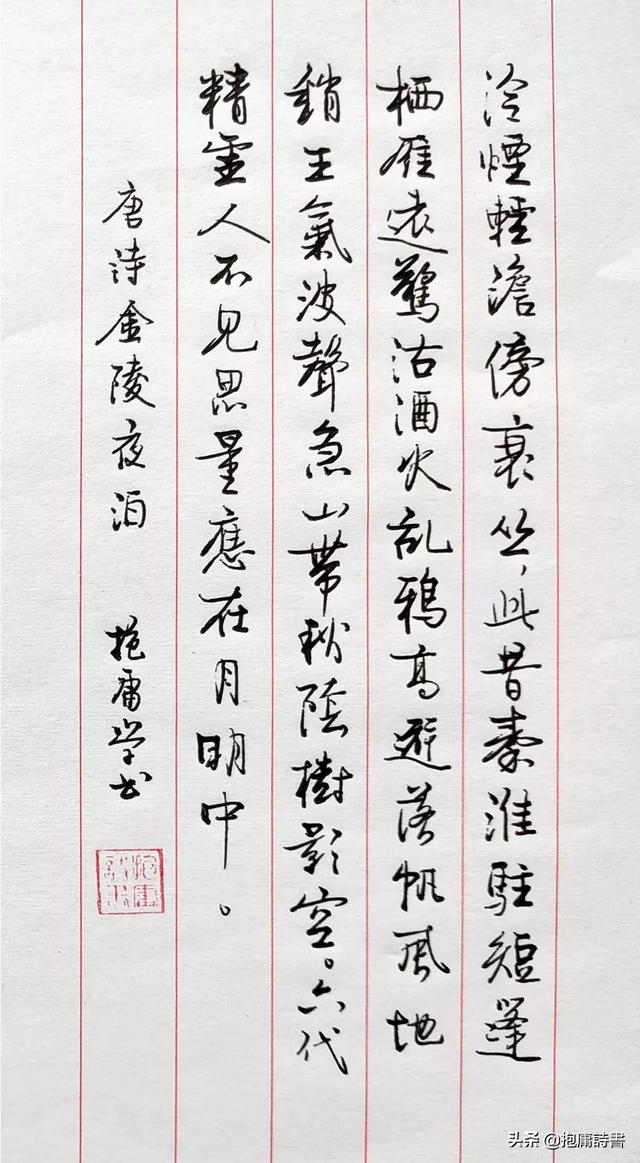 冷煙輕澹傍衰丛，此昔秦淮駐短蓬
栖雁遠驚沽酒火乱鴉高避落帆風地
銷王氣波聲急山帶秋陰樹影空。六代
精霊人不見思量應在月明中。
唐詩金陵夜泊 抱庸学书
头条 @抱庸詩書